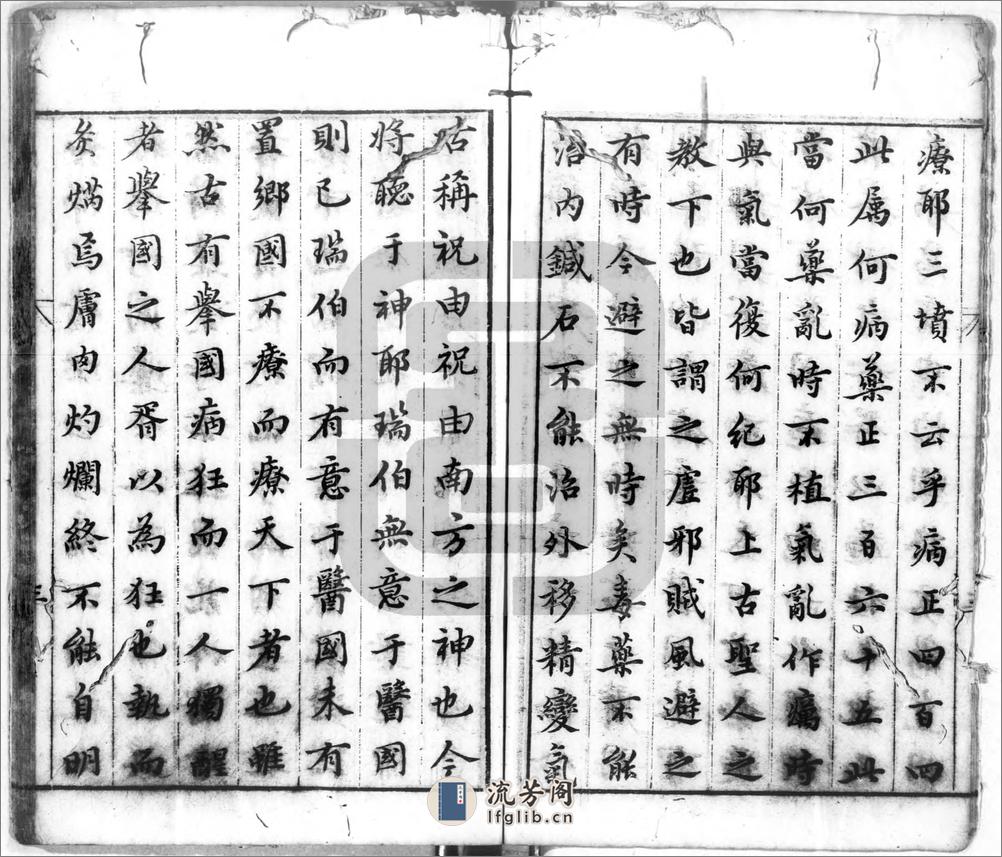 療耶三墳不云乎病正四百四
此属何病藥正三百六十五此
當何藥亂時不植氣亂作癘時
與氣當復何紀耶上古聖人之
教下也皆謂之虛邪賊風避之
有時今避之無時矣毒藥不能
治内鍼石不能治外移精變氣
咕稱祝由祝由南方之神也今
将聴于神耶瑞伯無意于醫國
則已瑞伯而有意于醫國未有
置鄉國不療而療天下者也雖
然古有擧國病狂而一人獨醒
者擧國之人胥以為狂也執而
炙焫焉膚肉灼爛終不能自明
三
流芳阁
lfglib.cn